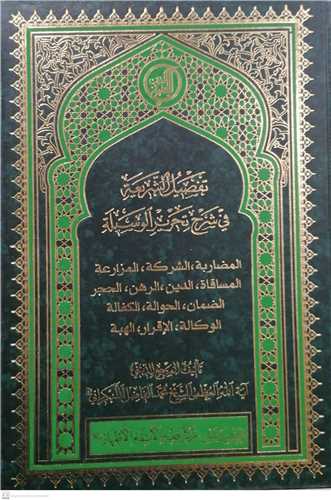 تفصيل الشريعة
في شرح تحرير الوسيلة
المضاربة، الشركة، المزارعة
المساقاة، الدين، الرهن، الحجر
الضمان، الحوالة، الكفالة
الوكالة، الإقرار، الهبة
تأليف المرجع الديني
آية الله العظمى الشيخ محمد الفاضل اللنكراني